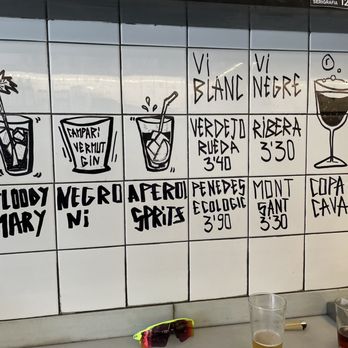 SERIGRAFIA
Vi
BLANC
Vi
NEGRE
CAMPARI
VERMUT
GIN
VERDEJO
RUEDA
3'40
RIBERA
3'30
LOODY
MARY
NEGRO
Ni
APEROL
SPRITZ
PENEDES
ECOLOGIC
3'90
MONT
SANT
3'30
COPA
CAVA